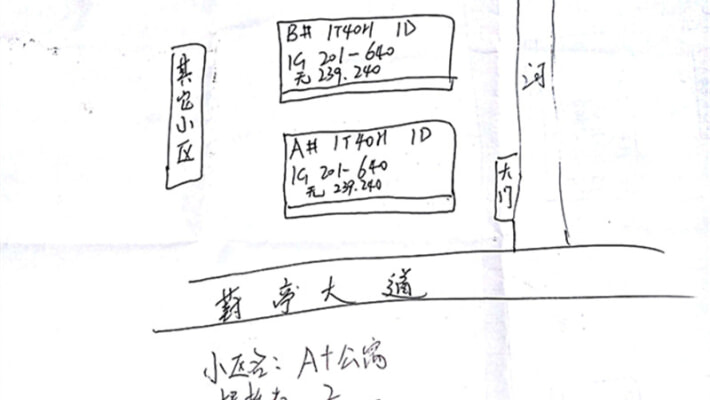 B# 1T40H 1D
1G 201-640
无 239.240
其它小区
河
A# 1T40H 1D
1G 201-640
无 239.240
大门
葑亭大道
小区名: A+公寓